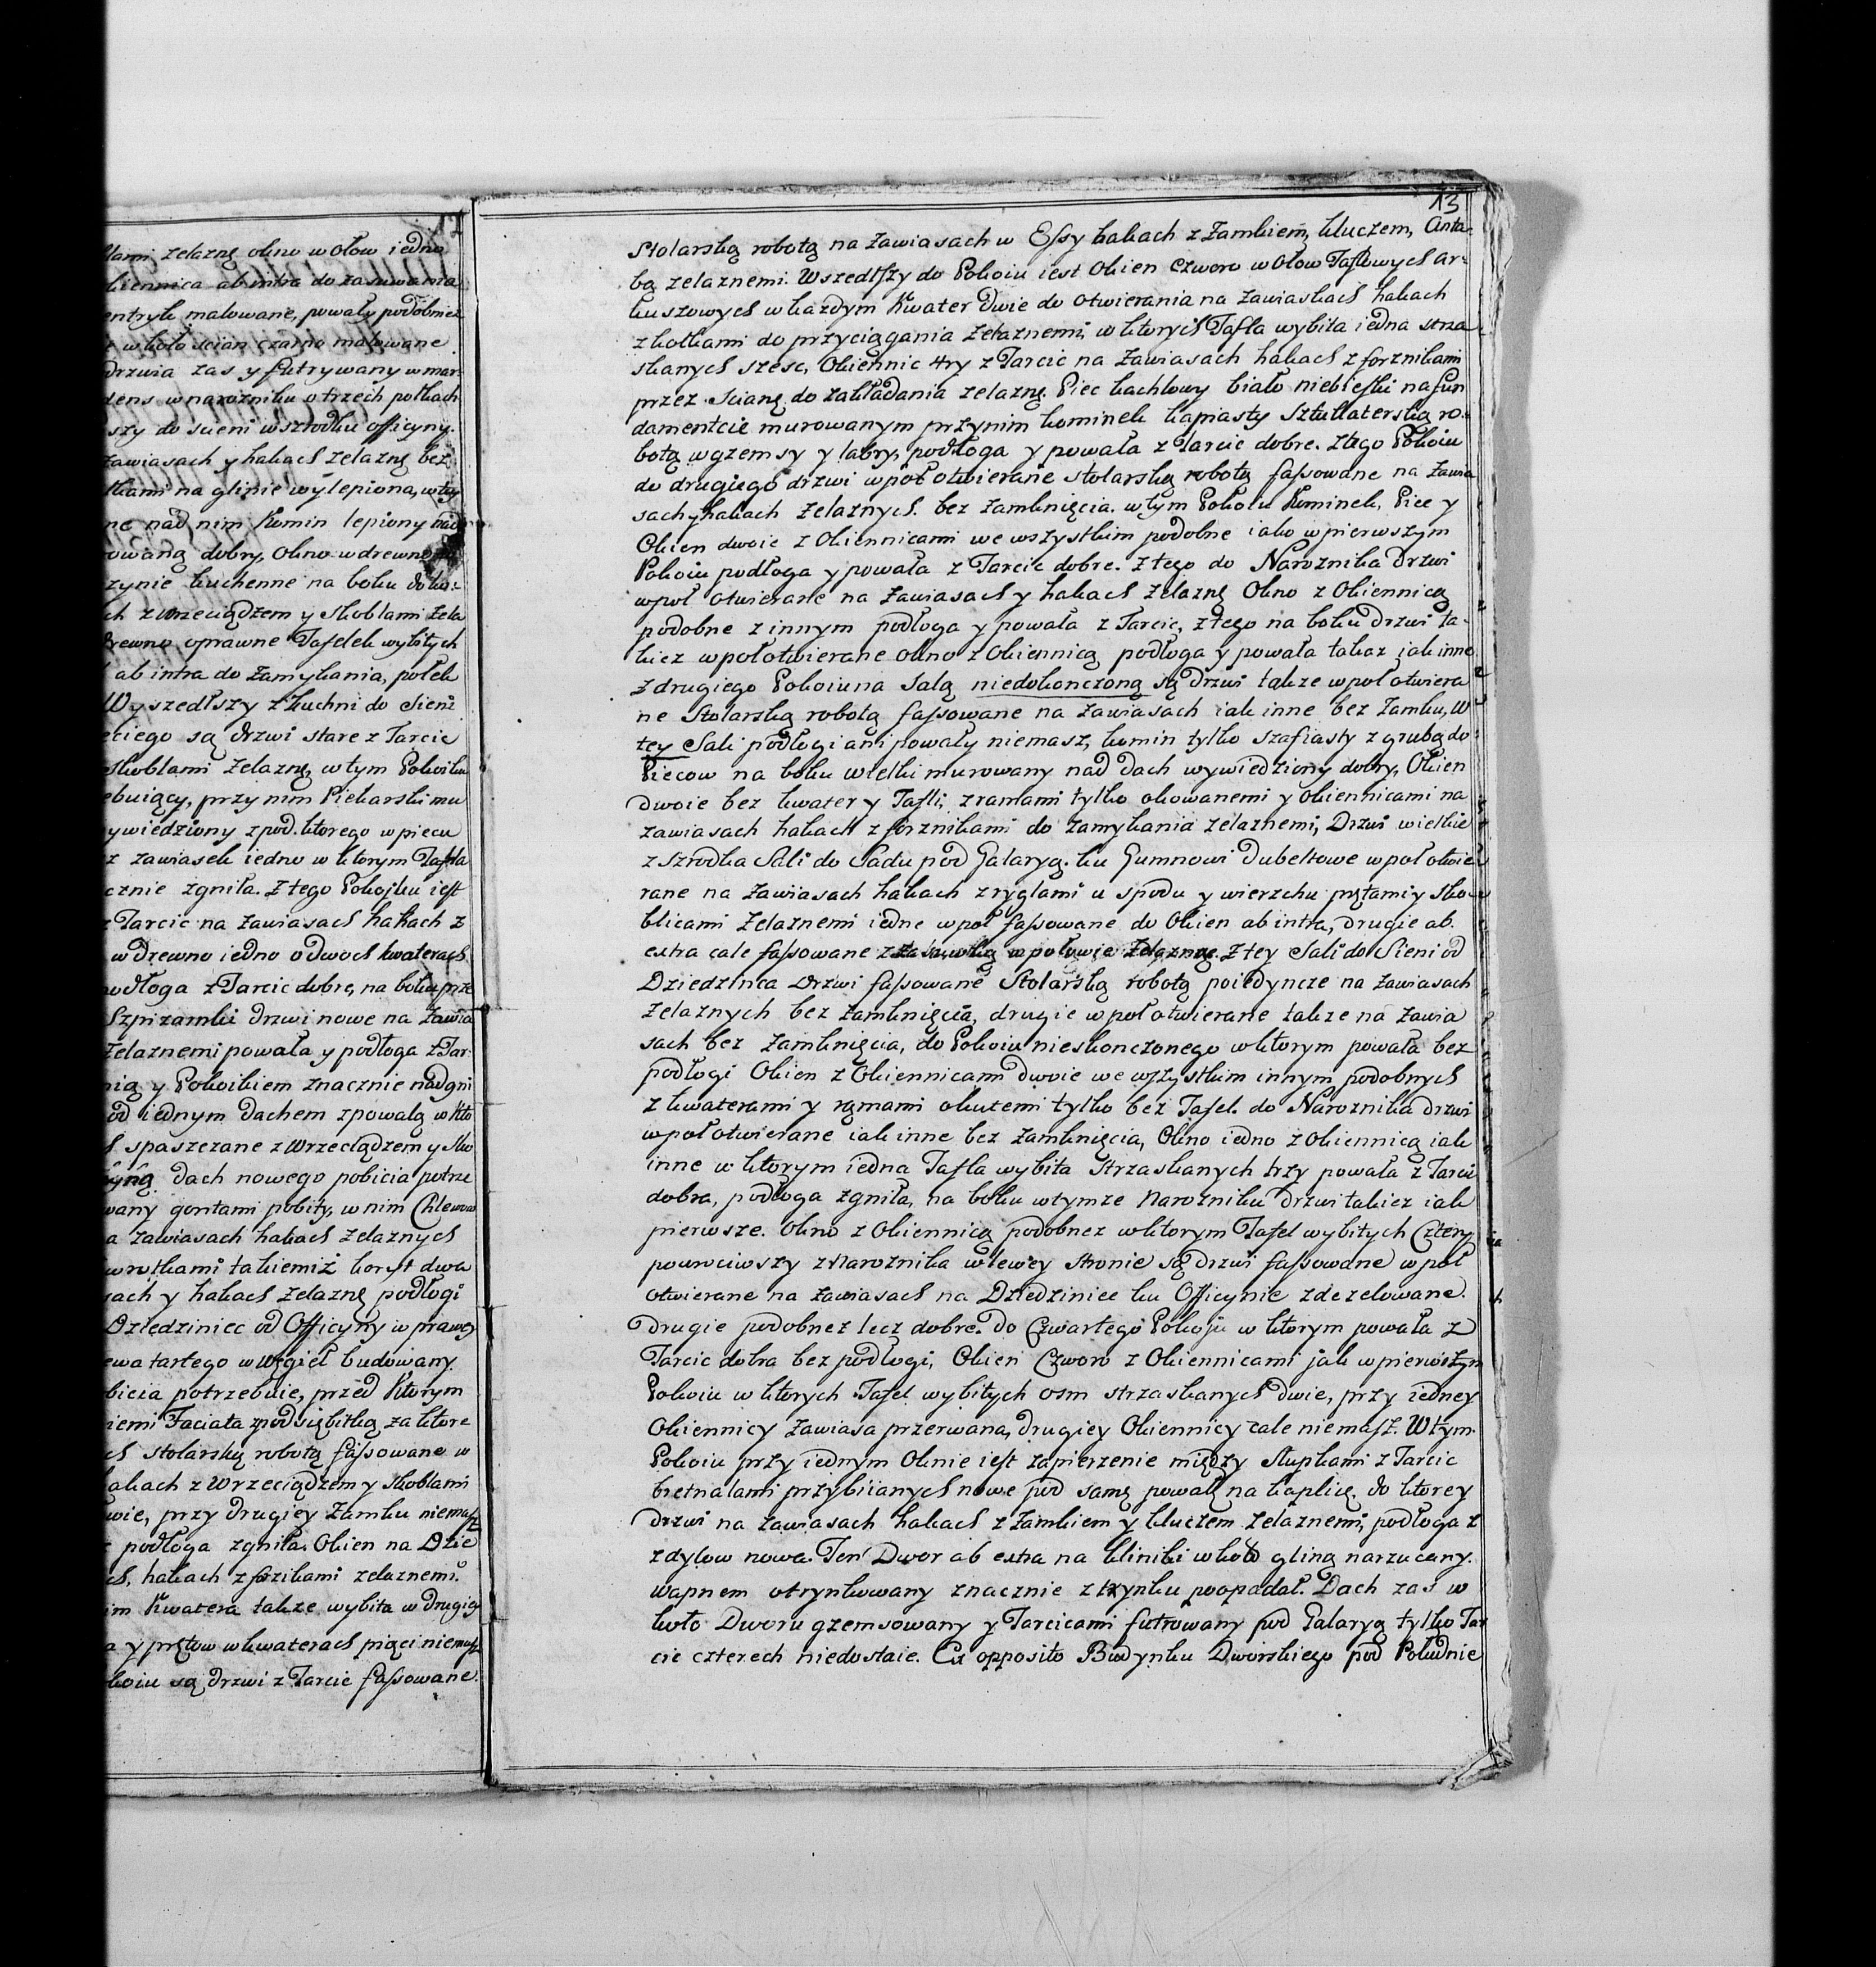 łami zelazne okno w ołow iedno
kiennica ab intra do zasuwania
entryk malowane, powały podobniez
w koło scian czarno malowane
drzwia zas y futrywany w mar
dens w narozniku o trzech połkach
szy do sieni w szrodku officyny.
zawiasach y hakach zelazne bez
tkami na glinie wylepiona, w tey
ne nad nim Komin lepiony nad
owaną dobry, Okno w drewno
zynie kuchenne na boku do ko
ch z wrzeciądzem y skoblami zela
drewno oprawne Tafelek wybitych
ab intra do zamykania, połek
Wyszedłszy z kuchni do Sieni
eciego są drzwi stare z Tarcic
skoblami zelazne, w tym Pokoiku
ebuiący, przy nim Piekarski mu
ywiedziony z pod ktorego w piecu
z zawiasek iedno w ktorym Tafla
cznie zgniła. Z tego Pokojku iest
z Tarcic na zawiasach hakach z
w drewno iedno o dwoch kwaterach
odłoga z Tarcic dobre, na boku prze
Szpizarnki drzwi nowe na zawia
zelaznemi powała y podłoga z Tar
nią y Pokoikiem znacznie nadgni
od iednym dachem z powałą w kto
spaszczane z wrzeciądzem y sko
yną dach nowego pobicia potrze
wany gontami pobity, w nim Chlewow
a zawiasach hakach zelaznych
wrotkami takiemiż koryt dwa
sach y hakach zelazne podłogi
Dziedziniec od Officyny w prawey
ewa tartego w węgieł budowany
bicia potrzebuie, przed ktorym
iemi Faciata z pod siębitką za ktore
ch stolarską robotą fassowane w
hakach z Wrzeciądzem y Skoblami
wie, przy drugiey zamku niemasz
podłoga zgniła. Okien na Dzie
ch, hakach z forzikami zelaznemi
im Kwatera takze wybita w drugiey
a y prętow w kwaterach pięci niemasz
koiu są drzwi z Tarcic fassowane.
13
Stolarską robotą na zawiasach w Essy hakach z Zamkiem, kluczem, Anta-
bą zelaznemi. Wszedłszy do Pokoiu iest Okien czworo w ołow Taflowych ar-
kuszowych w kazdym Kwater dwie do otwierania na zawiaskach hakach
z kołkami do przyciągania zelaznemi, w ktorych Tafla wybita iedna strza
skanych szesc, Okiennic 4ry z Tarcic na zawiasach hakach z forznikami
przez scianę do zakładania zelazne. Piec kachlowy biało niebieski na fun
damentcie murowanym przy nim kominek kapiasty Sztukaterską ro-
botą w gzemsy y labry, podłoga y powała z Tarcic dobre. Z tego Pokoiu
do drugiego drzwi wpoł otwierane stolarską robotą fassowane na zawia
sach y hakach zelaznych bez zamknięcia. w tym Pokoiu Kominek, Piec y
Okien dwoie z Okiennicami we wszystkim podobne iako w pierwszym
Pokoiu podłoga y powała z Tarcic dobre. Z tego do Naroznika drzwi
wpoł otwierane na zawiasach y hakach zelazne Okno z Okiennicą
podobne z innym podłoga y powała z Tarcic, z tego na boku drzwi ta-
kiez wpołotwierane okno z Okiennicą podłoga y powała takaz iak inne
Z drugiego Pokoiu na Salą niedokonczoną są drzwi takze wpoł otwiera
ne Stolarską robotą fassowane na zawiasach iak inne bez zamku, W
tey Sali podłogi ani powały niemasz, komin tylko szafiasty z grubą do
Piecow na boku wielki murowany nad dach wywiedziony dobry, Okien
dwoie bez kwater y Tafli, z ramami tylko okowanemi y okiennicami na
zawiasach hakach z forznikami do zamykania zelaznemi, Drzwi wielkie
z szrodka Sali do Sadu pod Galaryą ku Gumnowi dubeltowe wpoł otwie
rane na zawiasach hakach z ryglami u spodu y wierzchu prętami y sko-
blicami zelaznemi iedne wpoł fassowane do Okien ab intra, drugie ab
extra cale fassowane z zasuwką w połowie zelazną. Z tey Sali do Sieni od
Dziedzinca drzwi fassowane Stolarską robotą poiedyncze na zawiasach
zelaznych bez zamknięcia, drugie wpoł otwierane takze na zawia
sach bez zamknięcia, do Pokoiu nieskonczonego w ktorym powała bez
podłogi Okien z Okiennicami dwoie we wszystkim innym podobnych
z kwaterami y ramami okutemi tylko bez Tafel. do Naroznika drzwi
wpoł otwierane iak inne bez zamknięcia, Okno iedno z Okiennicą iak
inne w ktorym iedna Tafla wybita strzaskanych trzy powała z Tarcic
dobra, podłoga zgniła, na boku w tymze Narozniku drzwi takiez iak
pierwsze. Okno z Okiennicą podobnez w ktorym Tafel wybitych Cztery
powrociwszy z Naroznika w lewey stronie są drzwi fassowane wpoł
otwierane na zawiasach na Dziedziniec ku Officynie zdezelowane.
drugie podobnez lecz dobre. Do Czwartego Pokoju w ktorym powała z
Tarcic dobra bez podłogi, Okien Czworo z Okiennicami jak w pierwszym
Pokoiu w ktorych Tafel wybitych osm strzaskanych dwie, przy iedney
Okiennicy zawiasa przerwana, drugiey Okiennicy cale niemasz. W tym
Pokoiu przy iednym Oknie iest zapierzenie między słupkami z Tarcic
bretnalami przybiianych nowe pod samę powałę na kaplicę, do ktorey
drzwi na zawiasach hakach z zamkiem y kluczem zelaznemi, podłoga z
z dylow nowa. Ten Dwor ab extra na kliniki w koło gliną narzucany.
wapnem otrynkowany znacznie z trynku poopadał. Dach zas w
koło Dworu gzemsowany y Tarcicami futrowany pod Galaryą tylko Tar
cic czterech niedostaie. Ex opposito Budynku Dworskiego pod Południe